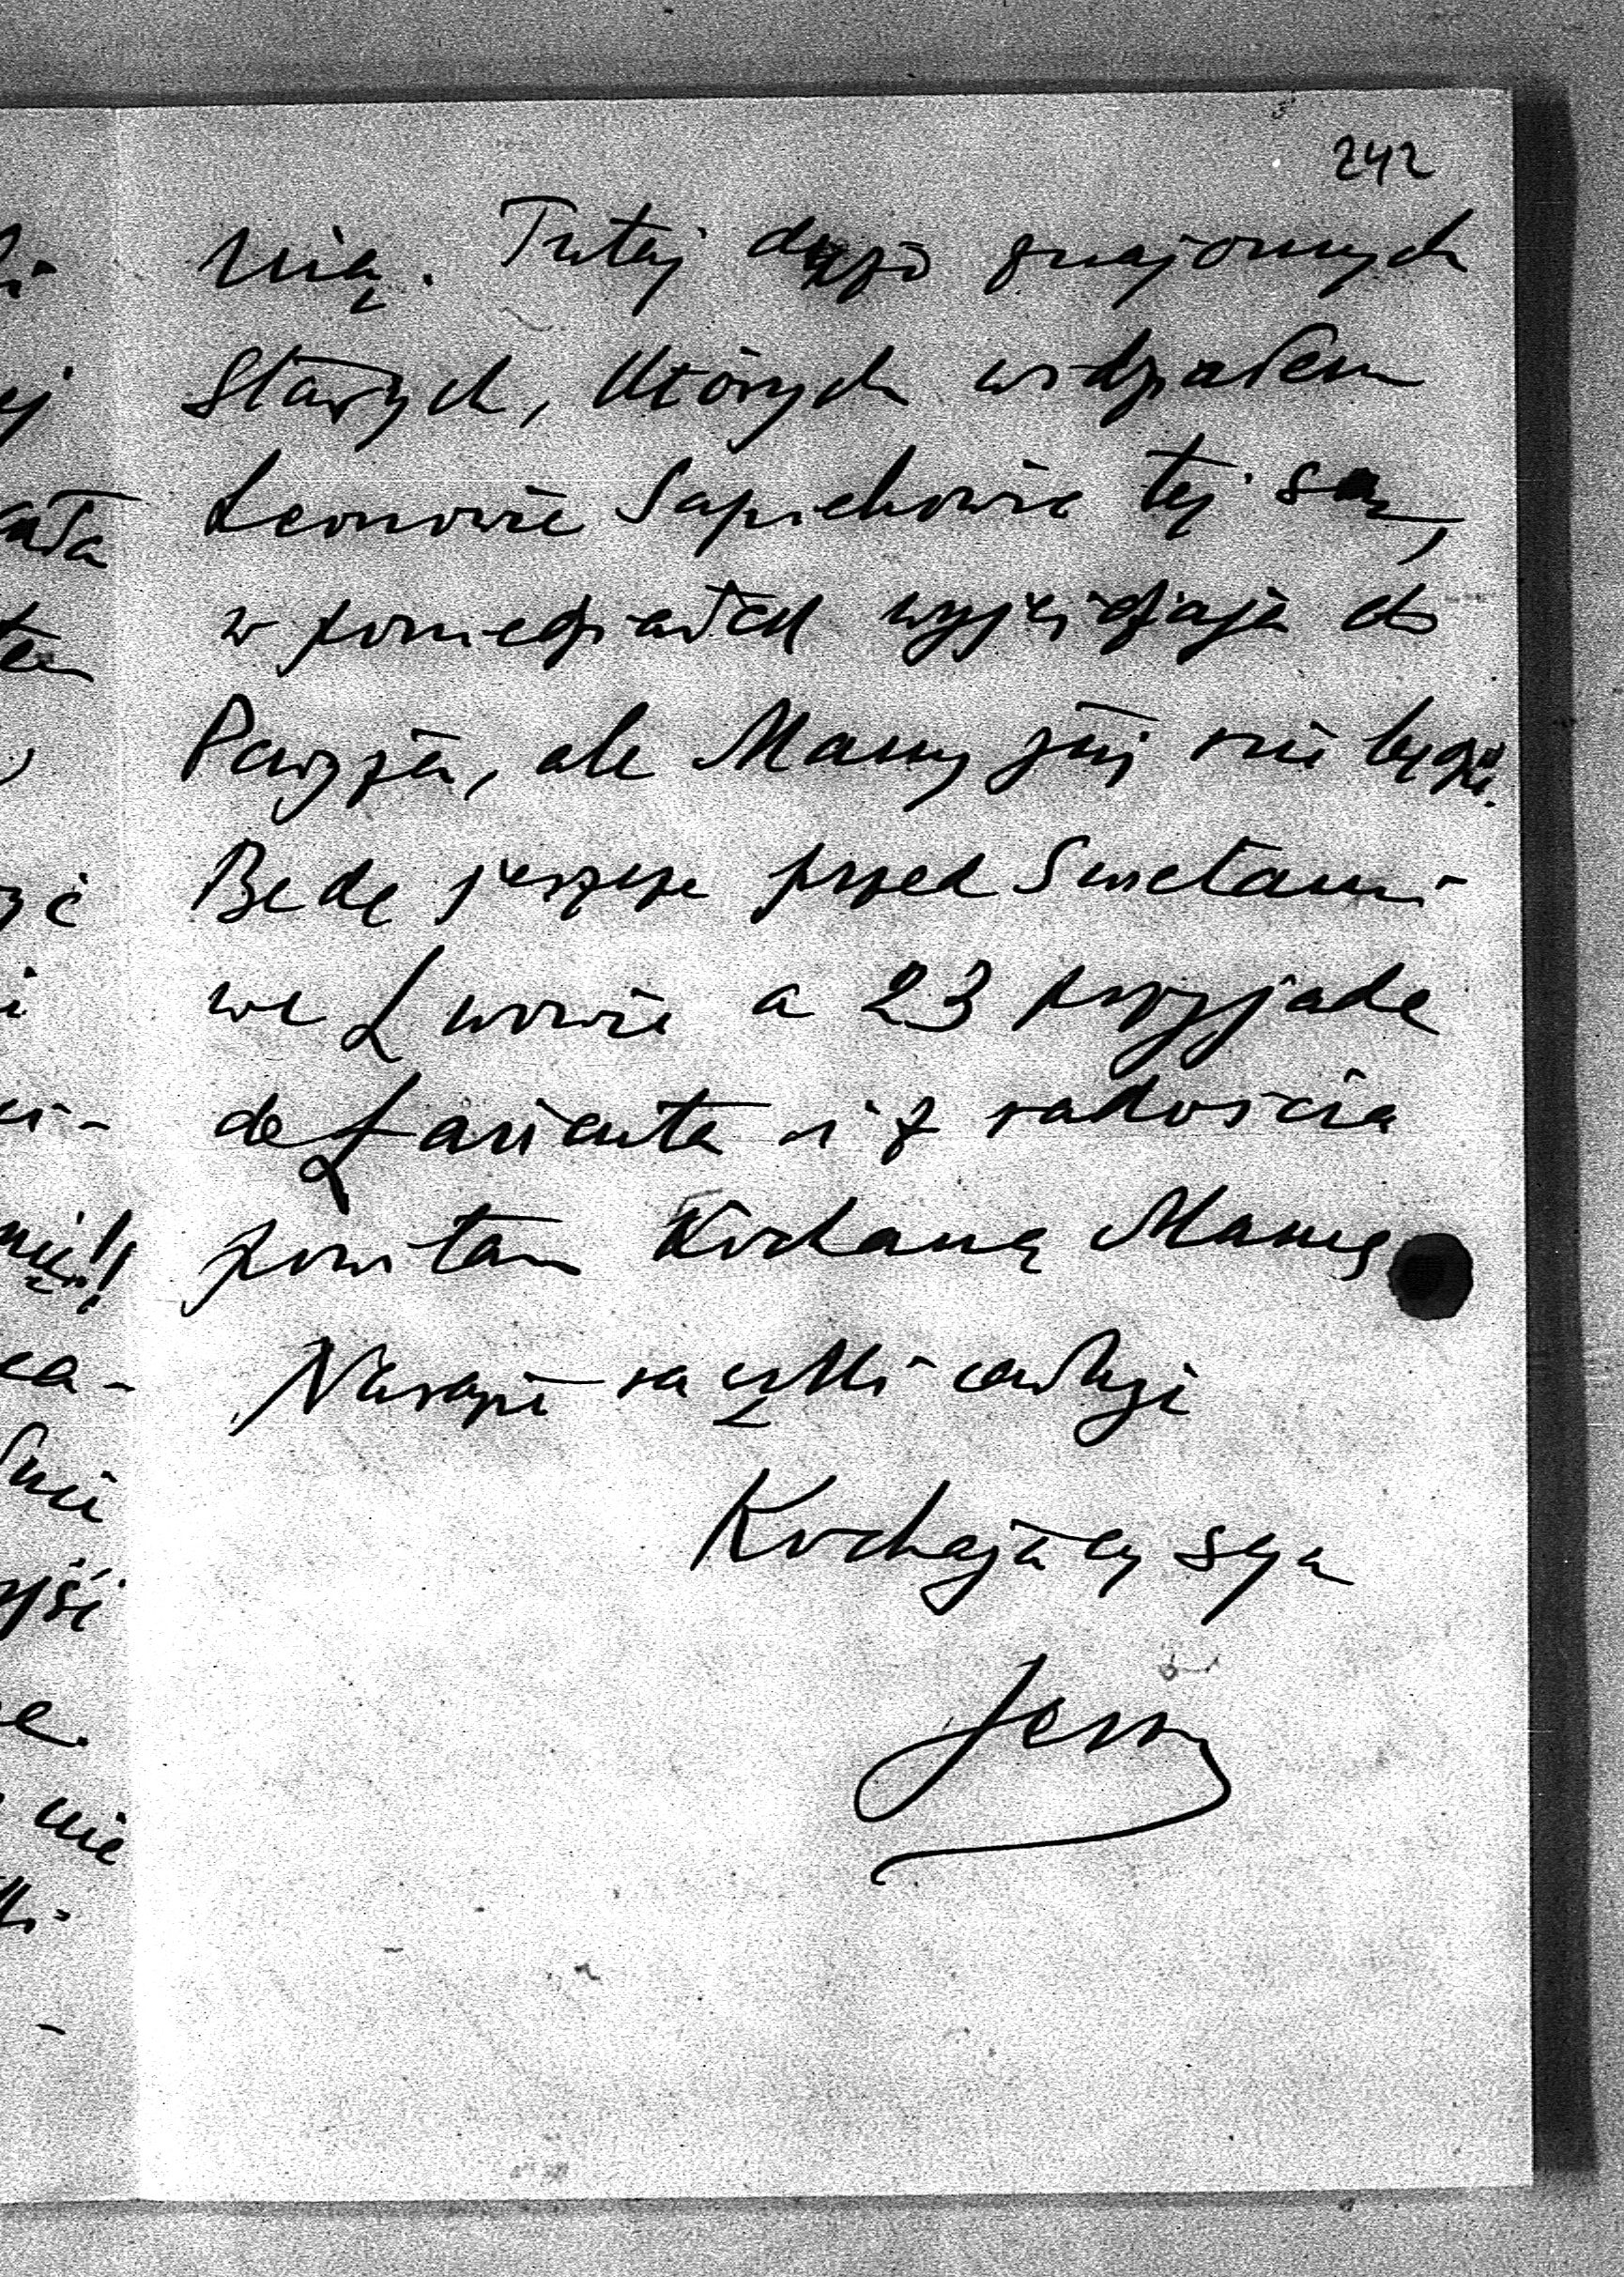 242
nią. Tutaj dużo znajomych
starych, których widziałem
Leonowie Sapiehowie też są,
w poniedziałek wyjeżdżają do
Paryża, ale Mamy już nie będzie.
Będę jeszcze przed Swietami
we Lwowie a 23 przyjadę
do Łańcuta i z radością
powitam Kochaną Mamę
Narazie rączki całuję
Kochający syn
Jerzy
ała
żć
nie